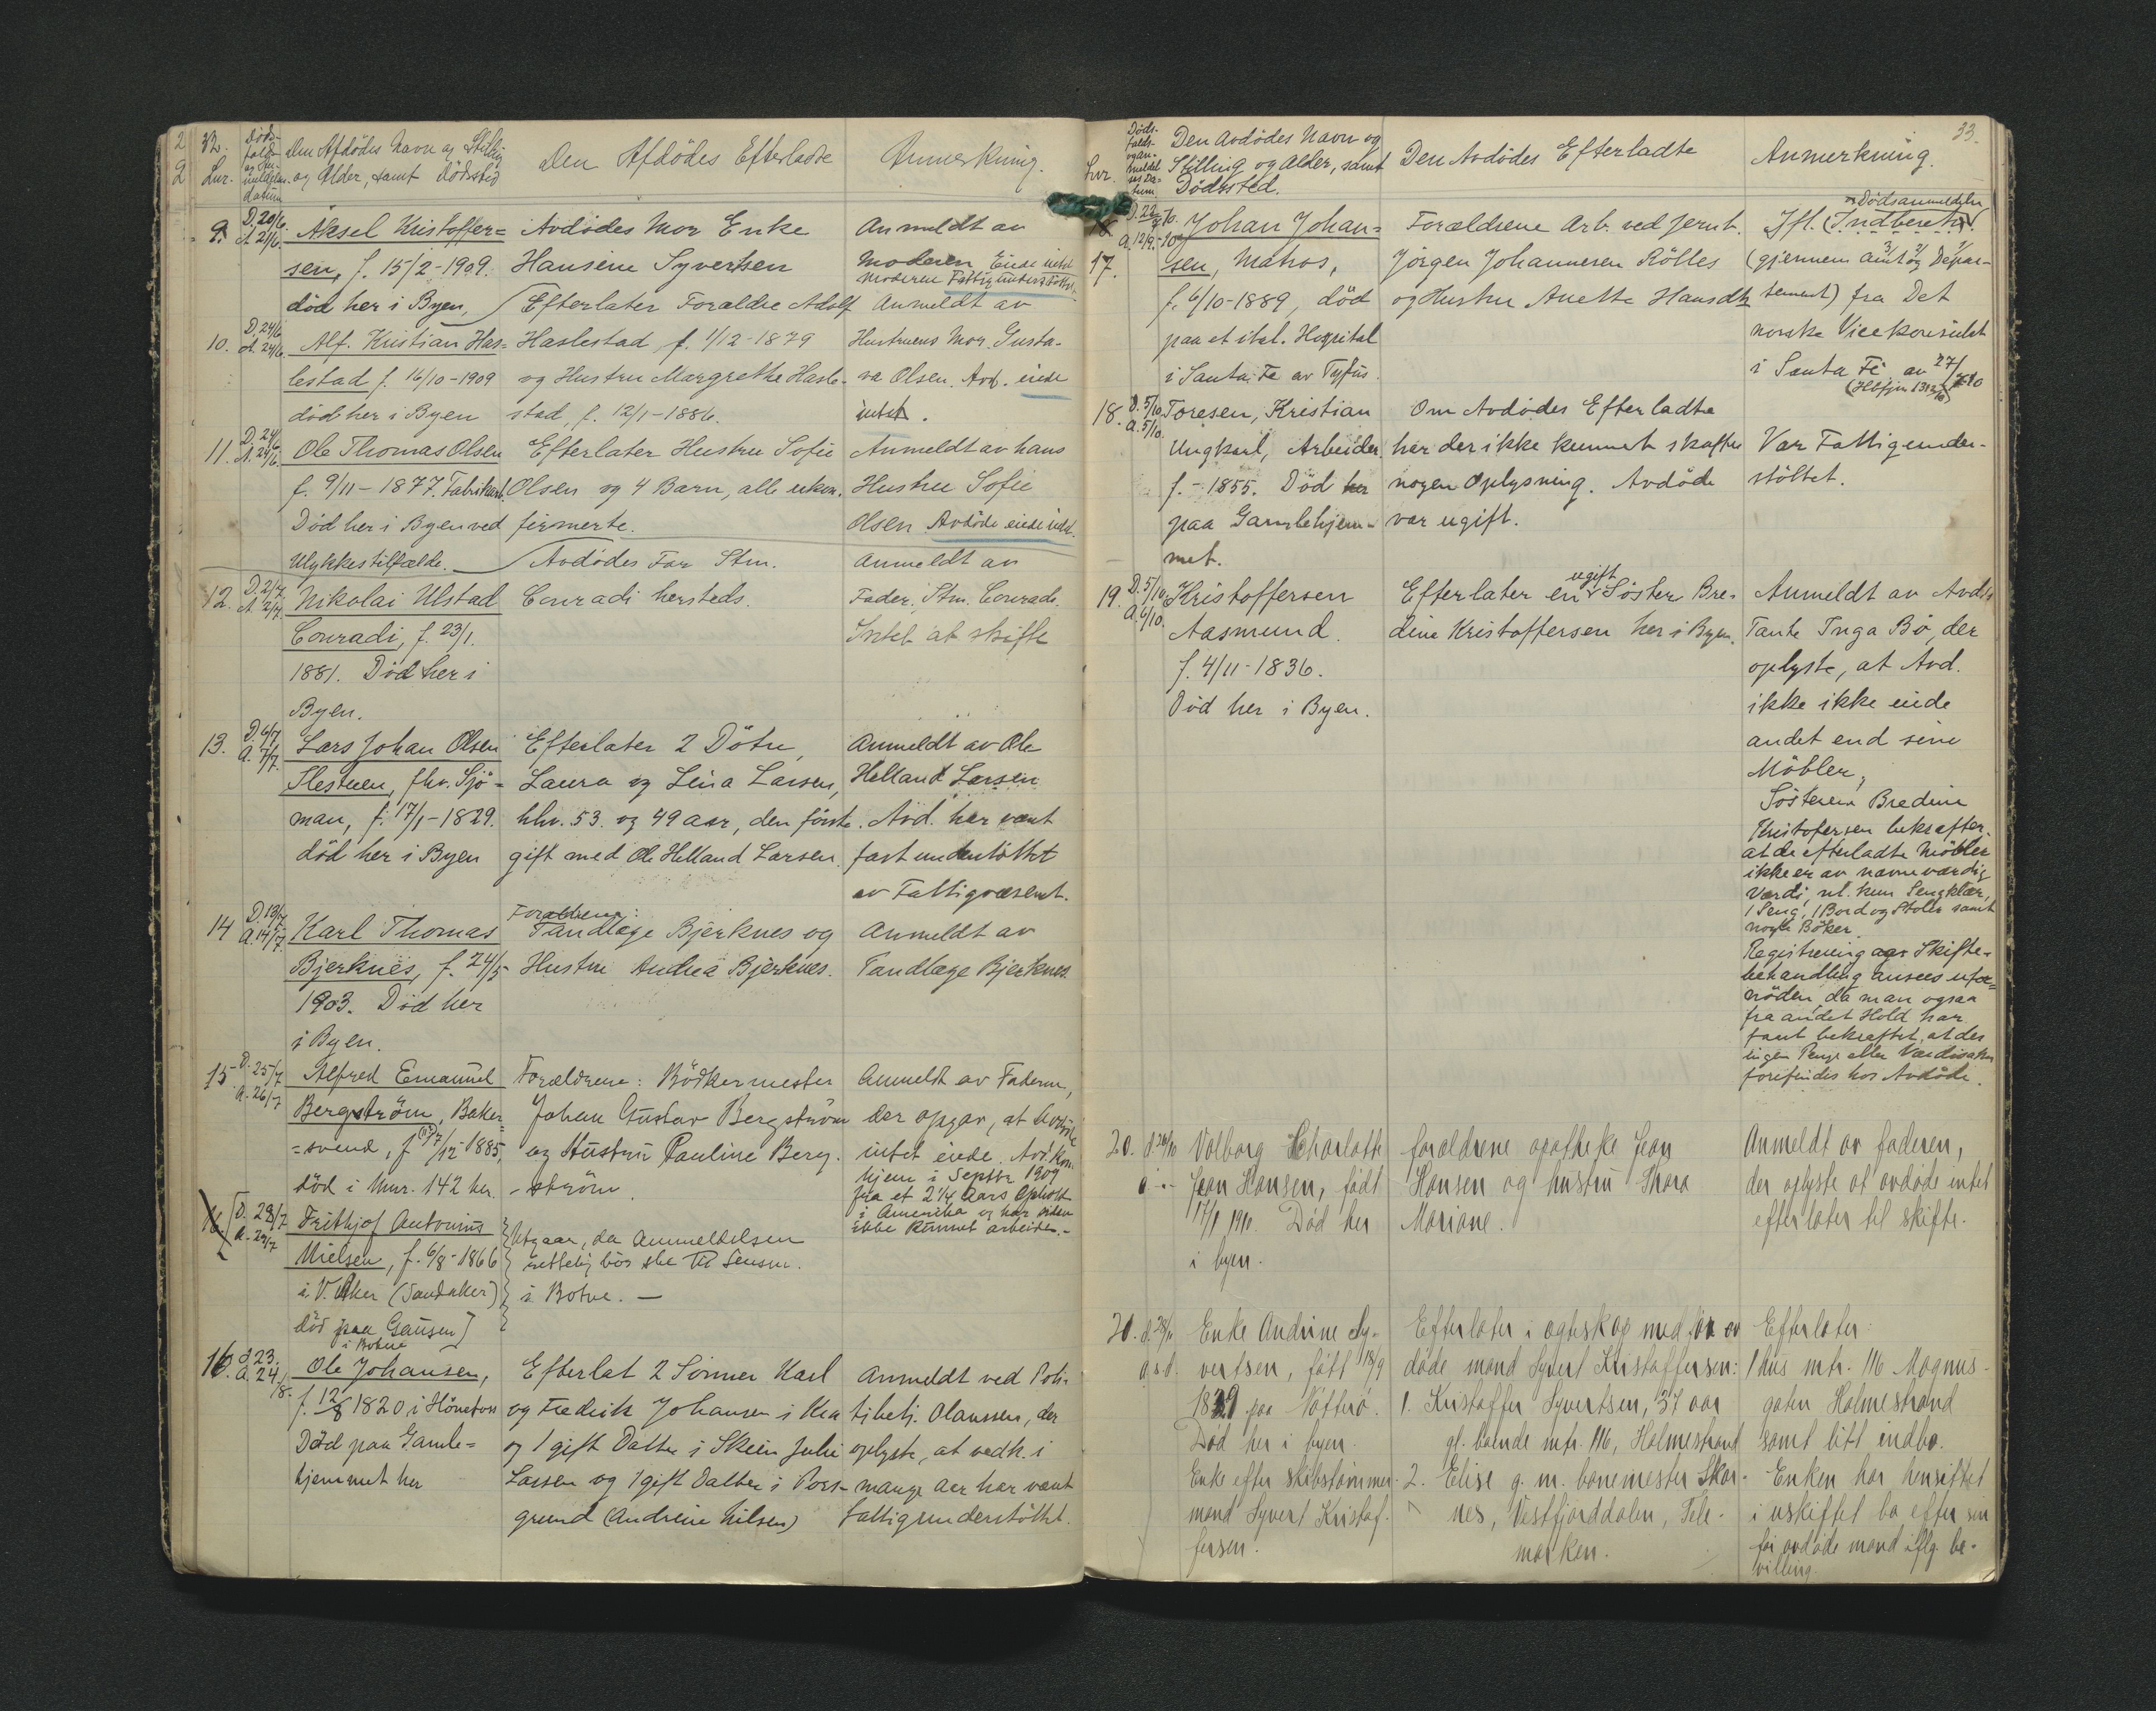 Lnr.
Døds-
falds
og An-
meldelses
datum
Den Afdödes Navn og Stilling
og Alder, samt Dödssted
Den Afdödes Efterladte
Anmerkning.
9.
D. 20/6.
A. 21/6.
Aksel Kristoffer=
sen, f. 15/2-1909.
död her i Byen,
Avdödes Mor Enke
Hansene Syvertsen
Anmeldt av
Moderen Eiede intet
Moderen Fattigunderstöttet.
10.
D. 24/6
A. 24/6.
Alf. Kristian Has=
lestad f. 16/10-1909
död her i Byen
Efterlater Forældre Adolf
Haslestad f. 1/12-1879
og Hustru Margrethe Hasle-
stad, f. 12/1-1886.
Anmeldt av
Hustruens Mor Gusta-
va Olsen. Avd. eiede
intet.
11.
D. 24/6
A. 24/6.
Ole Thomas Olsen
f. 9/11-1877. Fabrikarb.
Död her i Byen ved
Ulykkestilfælde.
Efterlater Hustru Sofie
Olsen og 4 Barn, alle ukon-
firmerte.
Anmeldt av hans
Hustru Sofie
Olsen. Avdöde eiede intet.
12.
D. 2/7.
A. 2/7.
Nikolai Ulstad
Conradi, f. 23/1.
1881. Död her i
Byen.
Avdödes Far Stm.
Conradi hersteds.
Anmeldt av
Fader, Stm. Conradi.
Intet at skifte
13.
D. 6/7
A. 7/7.
Lars Johan Olsen
Slestuen, fhv. Sjö=
man, f. 17/1-1829.
död her i Byen
Efterlater 2 Dötre,
Laura og Lina Larsen,
hhv. 53 og 49 aar, den förste
gift med Ole Helland Larsen.
Anmeldt av Ole
Helland Larsen
Avd. har vært
fast understöttet
av Fattigvæsenet.
14
D. 13/7
A. 14/7.
Karl Thomas
Bjerknes, f. 24/5
1903. Död her
i Byen.
Forældrene:
Tandlæge Bjerknes og
Hustru Andrea Bjerknes.
Anmeldt av
Tandlæge Bjerknes.
15
D. 25/7
A. 26/7
Alfred Emanuel
Bergström, Baker=
=svend, f 7/12 1885,
död i Mnr. 142 her.
Forældrene: Bödkermester
Johan Gustav Bergström
og Hustru Pauline Berg-
-ström.
Anmeldt av Faderen,
der opgav, at Avdöde
intet eiede. Avd. kom
hjem i Septbr 1909
fra et 2 1/4 Aars Ophold
i Amerika og har siden
ikke kunnet arbeide.-
16
D. 28/7
A. 29/7
Frithjof Antonius
Nielsen, f. 6/8-1866
i V. Aker (Sandaker)
död paa Gausen
i Botne
Utgaar, da Anmeldelsen
rettelig bör ske til Lensm.
i Botne. —
16.
d. 23.
A. 24/8.
Ole Johansen,
f. 12/8 1820 i Hönefoss
Död paa Gamle=
hjemmet her
Efterlat 2 Sönner Karl
og Fredrik Johansen i Kra
og 1 gift Datter i Skien Julie
Larsen og 1 gift Datter i Pors-
grund (Andrine Nilsen)
Anmeldt ved Poli-
tibetj. Olaussen, der
oplyste, at vedk. i
mange Aar har vært
fattigunderstöttet.
33.
Lnr.
Döds-
falds-
og an-
meldel-
ses Da-
tum
Den Avdödes Navn og
Stilling og Alder, samt
Dödssted.
Den Avdödes Efterladte
Anmerkning.
17.
D. 22/7 10.
A. 12/9-10
Johan Johan=
sen, Matros,
f. 6/10-1889, död
paa et ital. Hospital
i Santa Fe av Tyfus.
Forældrene Arb. ved Jernb.
Jörgen Johannesen Rölles
og Hustru Anette Hansdtr
Dödsanmeldelse
Ifl. (Indberetn)
(gjennem Amt og Depar-
tement) fra Det
norske Vicekonsulat
i Santa Fé av 27/7 10
18.
D. 5/10
A. 5/10.
Toresen, Kristian
Ungkarl, Arbeider
f. - 1855. Död her
paa Gamlehjem-
met.
Om Avdödes Efterladte
har der ikke kunnet skaffes
nogen Oplysning. Avdöde
var ugift.
Var Fattigunder-
stöttet.
19.
D. 5/10
A. 6/10.
Kristoffersen
Aasmund.
f. 4/11-1836.
Död her i Byen.
ugift
Efterlater en Söster Bre-
dine Kristoffersen her i Byen.
Anmeldt av Avds
Tante Inga Bö, der
oplyste, at Avd.
ikke ikke eiede
andet end sine
Möbler,
Sösteren Bredine
Kristofersen bekræfter,
at de efterladte Möbler
ikke er av nævneværdig
Værdi, nl. kun Sengklær,
1 Seng, 1 Bord og Stoler samt
nogle Böker.
Registrering og Skifte-
behandling ansees ufor-
nöden, da man ogsaa
fra andet Hold har
faat bekræftet, at der
ingen Penge eller Værdisaker
forefindes hos Avdöde.
20.
Valborg Charlotte
Jean Hansen, født
17/1 1910. Død her
i byen.
forældrene apotheker Jean
Hansen og hustru Thora
Mariane.
Anmeldt av faderen,
der oplyste at avdøde intet
efterlater til skifte.
21.
d. 28/11
a s.d.
Enke Andrine Sy-
vertsen, født 18/9
1829 paa Nötterö.
Død her i byen.
Enke efter skibstømmer-
mand Syvert Kristof-
fersen.
Efterlater i ægteskap med før av
døde mand Syvert Kristoffersen:
1. Kristoffer Syvertsen, 37 aar
gl. boende mtr. 116, Holmestrand
2. Elise g. m. banemester Skar-
nes, Vestfjorddalen, Tele-
marken.
Efterlater:
1 hus mtr. 116 Magnus-
gaten Holmestrand
samt litt indbo.
Enken har hensittet
i uskiftet bo efter sin
før avdøde mand iflg. be-
villing.